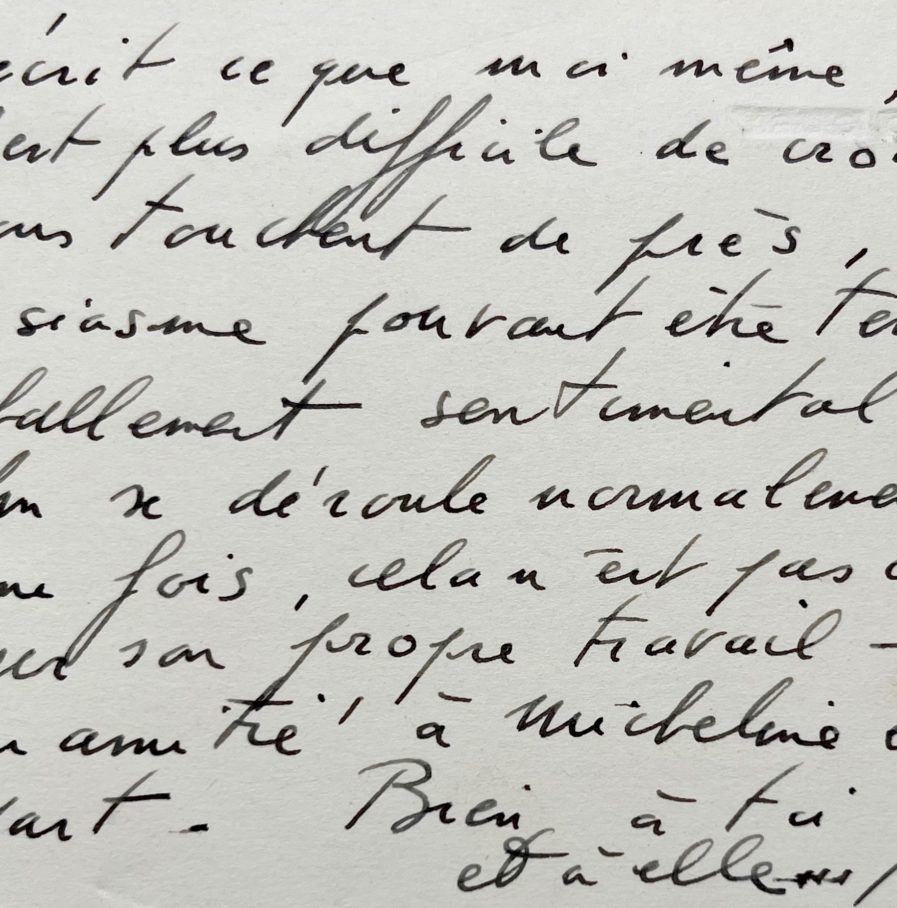 écrit ce que moi même,
est plus difficile de cro
ous touchent de près,
siasme pouvant être te
ballement sentimental
se déroule normaleme
fois, cela n'est pas
sur son propre travail -
amitié à Micheline e
part - Bien à toi
et à elle